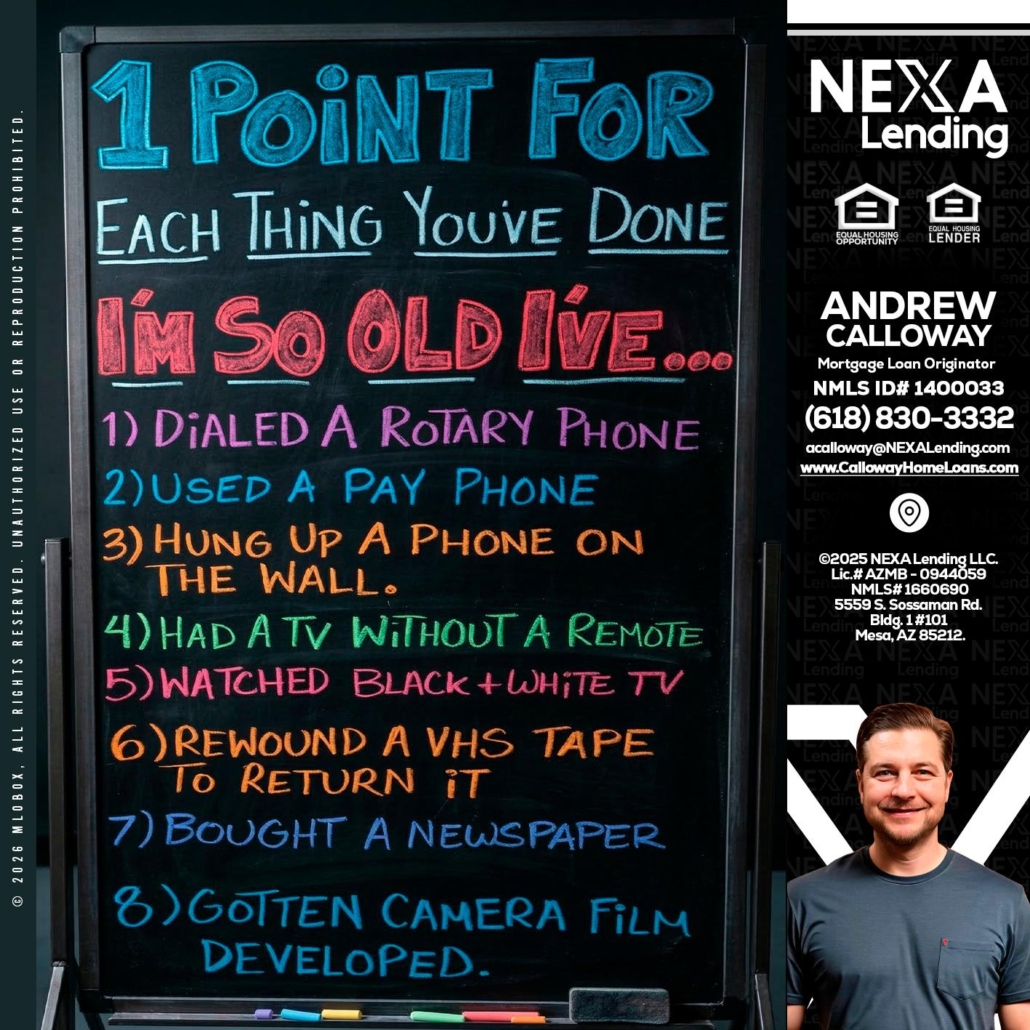 © 2026 MLOBOX, ALL RIGHTS RESERVED. UNAUTHORIZED USE OR REPRODUCTION PROHIBITED.
1 POiNT FOR
EACH THING YOU'VE DONE
I'M SO OLD I'VE...
1) DiALED A ROTARY PHONE
2) USED A PAY PHONE
3) HUNG UP A PHONE ON
THE WALL.
4) HAD A TV WiTHOUT A REMOTE
5) WATCHED BLACK + WHiTE TV
6) REWOUND A VHS TAPE
TO RETURN iT
7) BOUGHT A NEWSPAPER
8) GOTTEN CAMERA FiLM
DEVELOPED.
NEXA
Lending
EQUAL HOUSING
OPPORTUNITY
EQUAL HOUSING
LENDER
ANDREW
CALLOWAY
Mortgage Loan Originator
NMLS ID# 1400033
(618) 830-3332
acalloway@NEXALending.com
www.CallowayHomeLoans.com
©2025 NEXA Lending LLC.
Lic.# AZMB - 0944059
NMLS# 1660690
5559 S. Sossaman Rd.
Bldg. 1 #101
Mesa, AZ 85212.